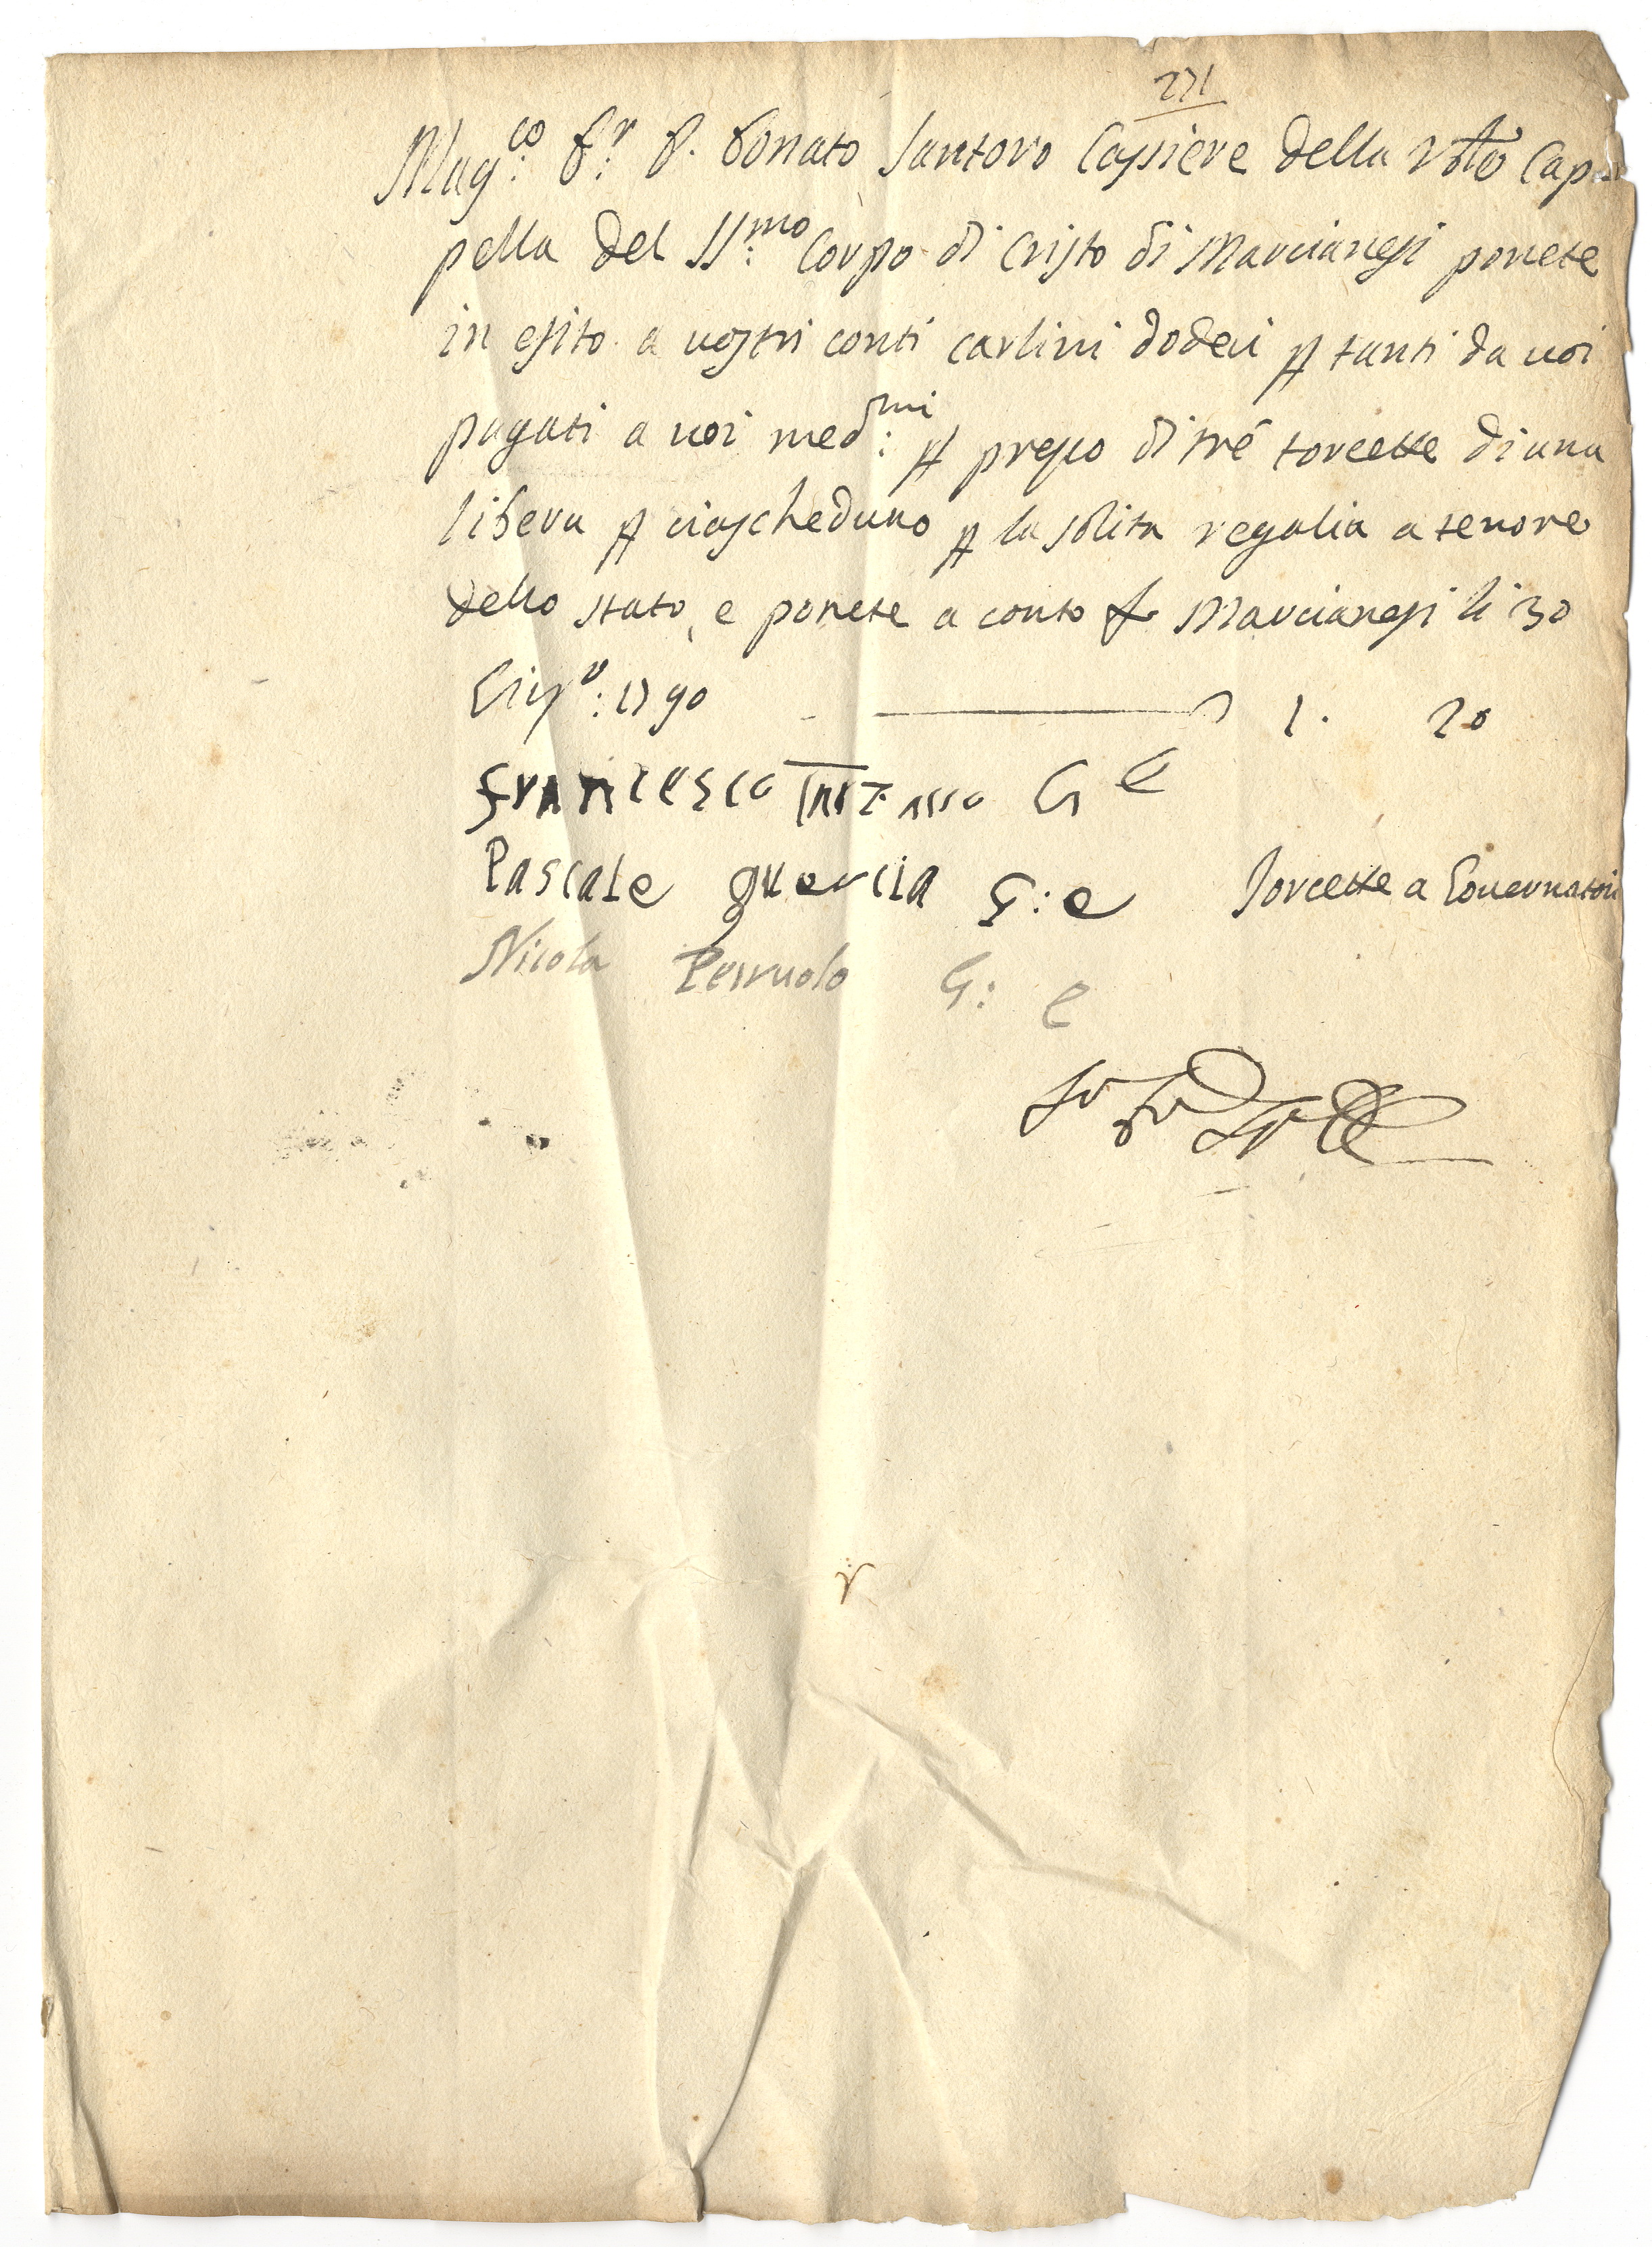 271
Mag:co S:r D. Donato Santoro Cassiere della Vble Cap-
pella del SS:mo Corpo di Cristo di Marcianesi ponete
in esito a vostri conti carlini dodeci p tanti da voi
pagati a voi med:mi p prezzo di tré torcette di una
libera p ciascheduno p la solita regalia a tenore
dello stato, e ponete a conto & Marcianesi li 30
Giug:o 1790 1. 20
Francesco G e
Pascale guercia G:e Torcette a Governatori
Nicola G: e